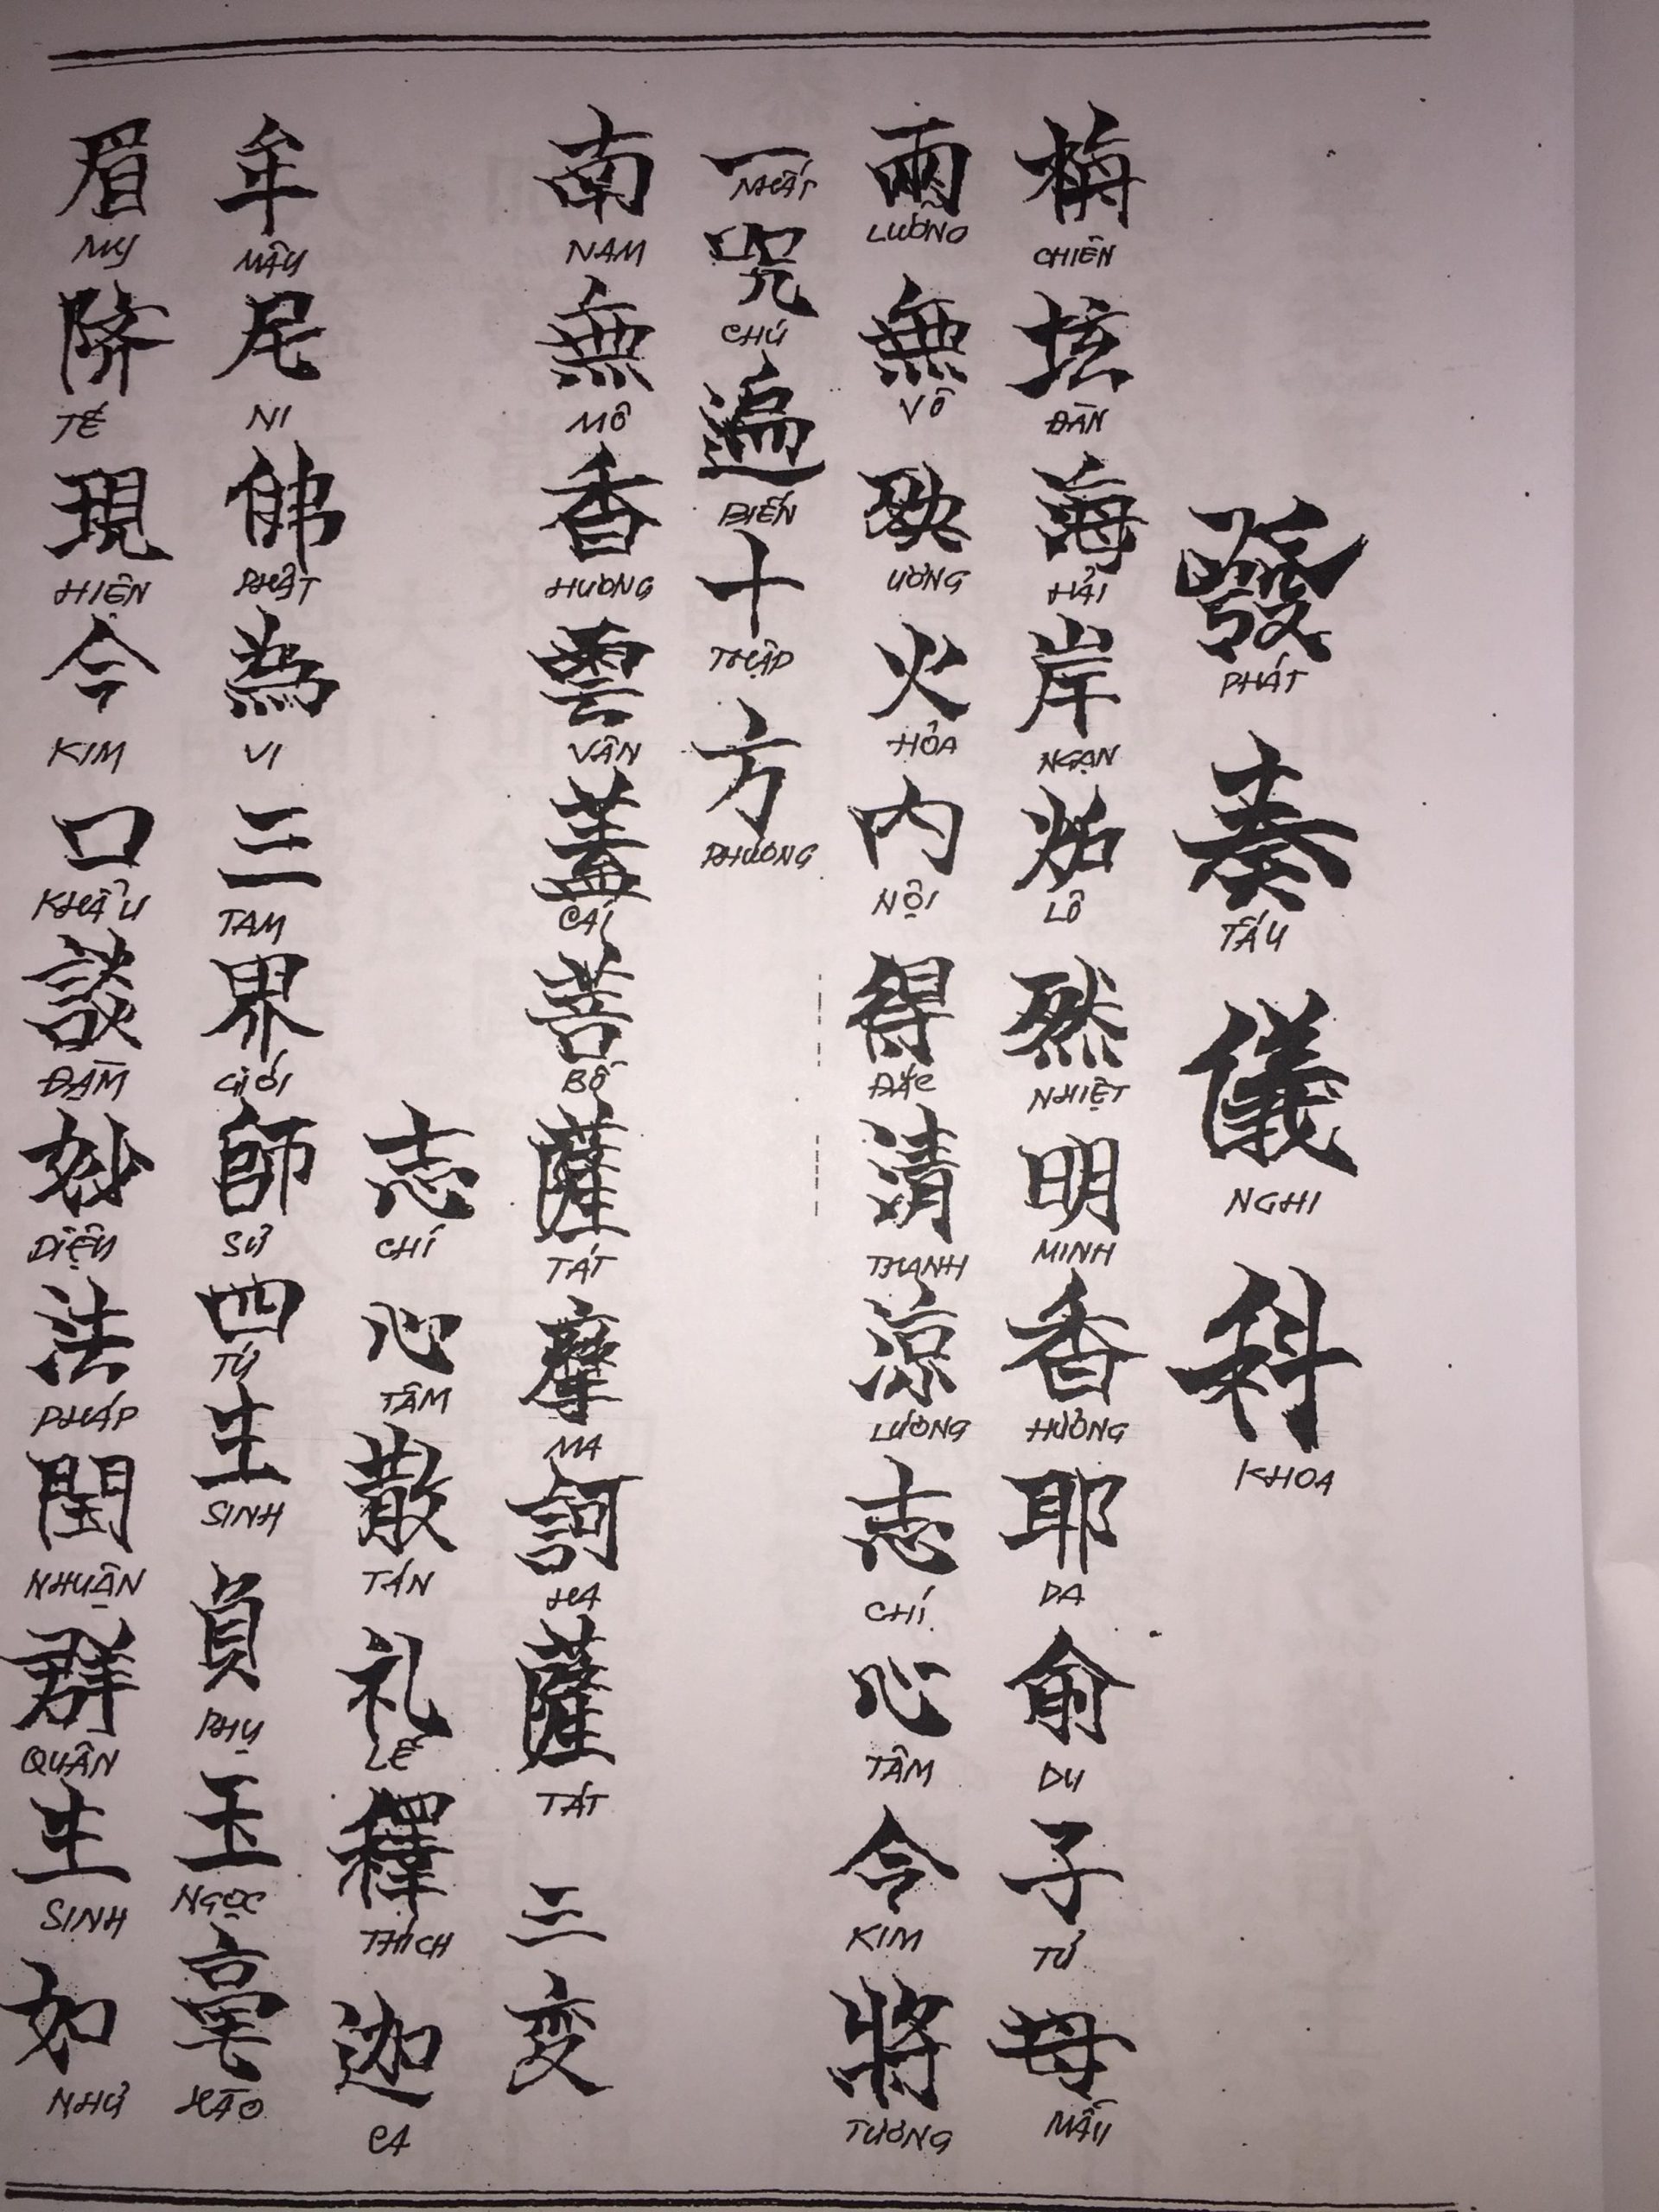 發奏儀科
PHÁT TẤU NGHI KHOA
栴坛海岸炉然明香耶俞子母
CHIÊN ĐÀN HẢI NGẠN LÔ NHIỆT MINH HƯƠNG DA DU TỬ MẪU
兩無殃火内得清涼志心今將
LƯỠNG VÔ ƯƠNG HỎA NỘI ĐẮC THANH LƯƠNG CHÍ TÂM KIM TƯƠNG
一咒遍十方
NHẤT CHÚ BIẾN THẬP PHƯƠNG
南無香雲蓋菩薩摩訶薩三变
NAM MÔ HƯƠNG VÂN CÁI BỒ TÁT MA HA TÁT
志心散礼釋迦
CHÍ TÂM TÁN LỄ THÍCH CA
牟尼佛為三界師四生貟玉毫
MÂU NI PHẬT VI TAM GIỚI SƯ TỨ SINH PHỤ NGỌC HÀO
眉隮現今口談妙法閏群生如
MY TẾ HIỆN KIM KHẨU ĐÀM DIỆU PHÁP NHUẬN QUẦN SINH NHƯ